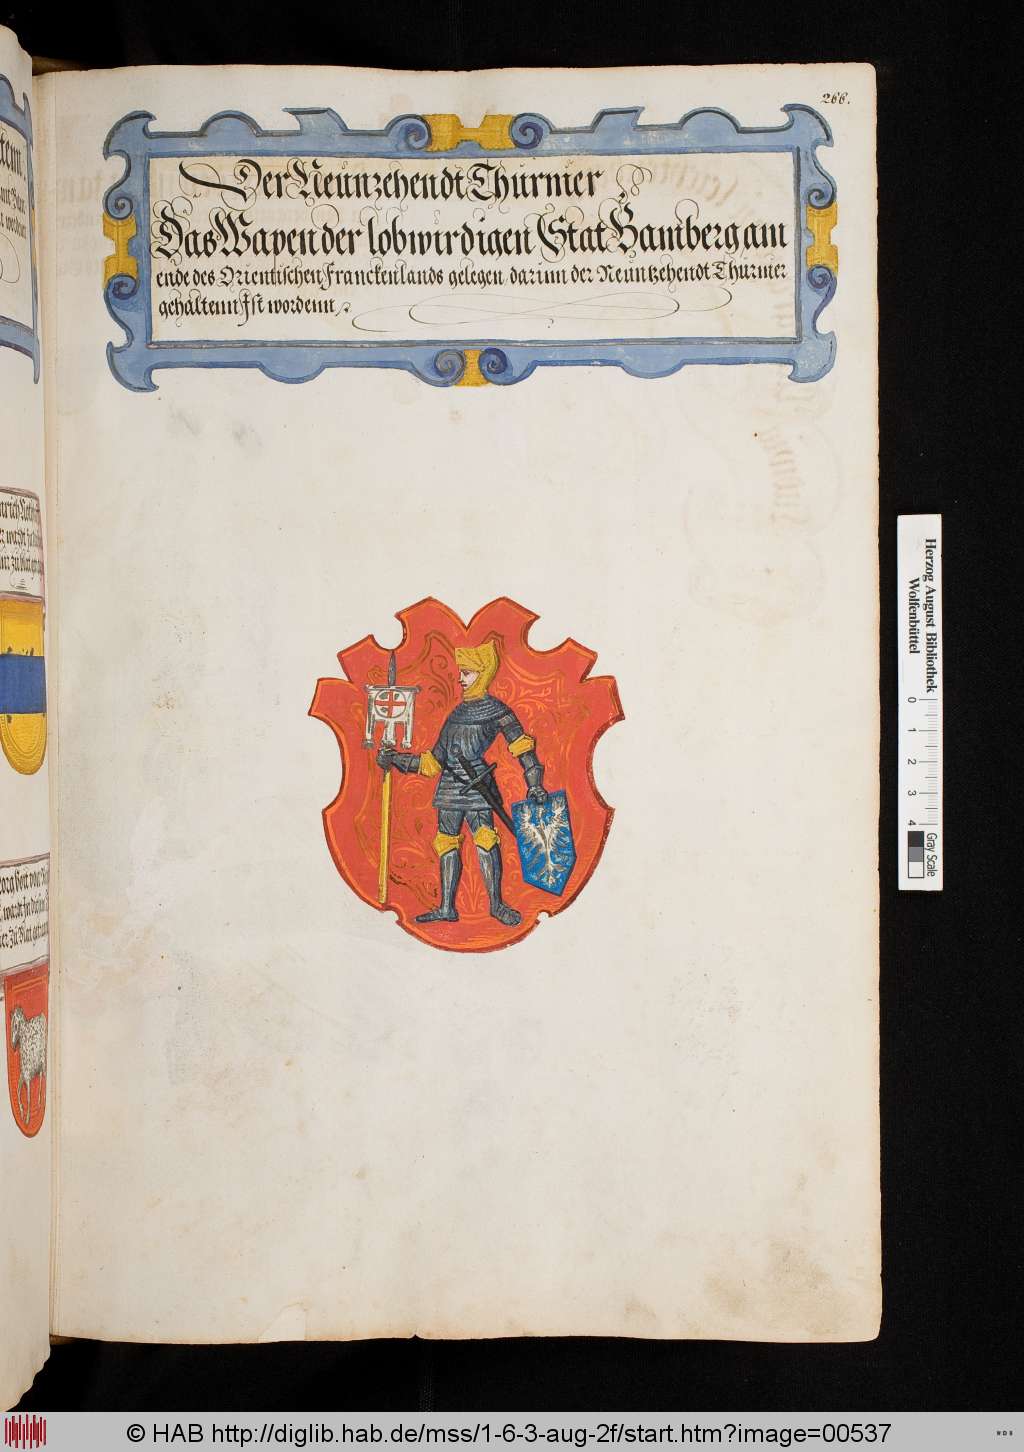 266.
Der Neunzehendt Thurnier
Das Wapen der lobwirdigen Stat Bamberg am
ende des Orientischen Franckenlands gelegen, darinn der Neuntzehendt Thurnier
gehaltenn Ist wordenn
Herzog August Bibliothek
Wolfenbüttel
0 1 2 3 4
Gray Scale
© HAB http://diglib.hab.de/mss/1-6-3-aug-2f/start.htm?image=00537